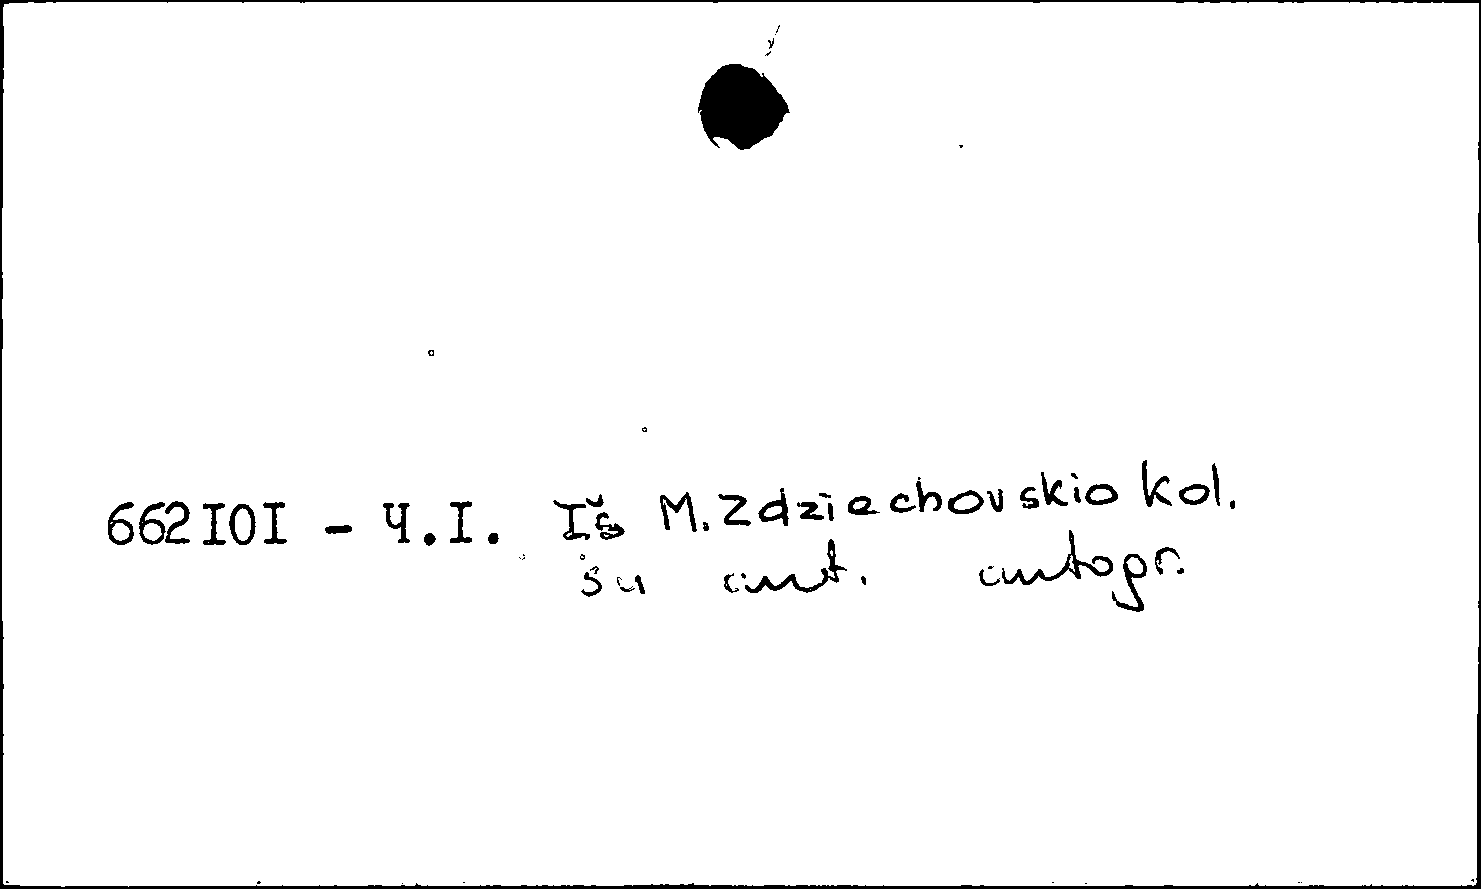 662I0I - Ч.I. Iš M. Zdziechovskio kol.
su aut. autogr.